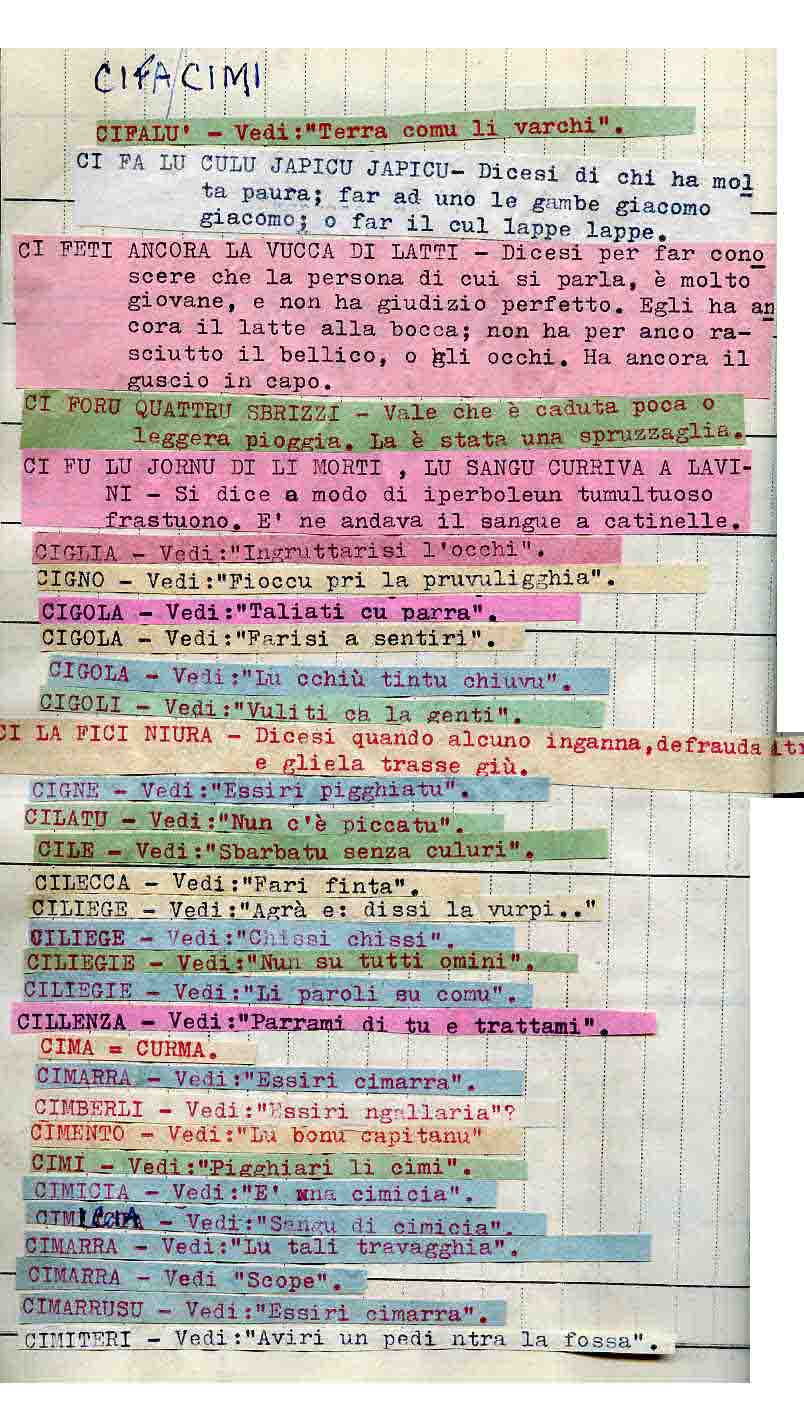 CIFA/CIMI
CIFALU' - Vedi:"Terra comu li varchi".
CI FA LU CULU JAPICU JAPICU- Dicesi di chi ha mol
ta paura; far ad uno le gambe giacomo
giacomo; o far il cul lappe lappe.
CI FETI ANCORA LA VUCCA DI LATTI - Dicesi per far cono
scere che la persona di cui si parla, è molto
giovane, e non ha giudizio perfetto. Egli ha an
cora il latte alla bocca; non ha per anco ra-
sciutto il bellico, o gli occhi. Ha ancora il
guscio in capo.
CI FORU QUATTRU SBRIZZI - Vale che è caduta poca o
leggera pioggia. La è stata una spruzzaglia.
CI FU LU JORNU DI LI MORTI , LU SANGU CURRIVA A LAVI-
NI - Si dice a modo di iperboleun tumultuoso
frastuono. E' ne andava il sangue a catinelle.
CIGLIA - Vedi:"Ingruttarisi l'occhi".
CIGNO - Vedi:"Fioccu pri la pruvuligghia".
CIGOLA - Vedi:"Taliati cu parra".
CIGOLA - Vedi:"Farisi a sentiri".
CIGOLA - Vedi:"Lu cchiù tintu chiuvu".
CIGOLI - Vedi:"Vuliti ca la genti".
CI LA FICI NIURA - Dicesi quando alcuno inganna,defrauda
e gliela trasse giù.
CIGNE - Vedi:"Essiri pigghiatu".
CILATU - Vedi:"Nun c'è piccatu".
CILE - Vedi:"Sbarbatu senza culuri".
CILECCA - Vedi:"Fari finta".
CILIEGE - Vedi:"Agrà e: dissi la vurpi.."
CILIEGE - Vedi:"Chissi chissi".
CILIEGIE - Vedi:"Nun su tutti omini".
CILIEGIE - Vedi:"Li paroli su comu".
CILLENZA - Vedi:"Parrami di tu e trattami".
CIMA = CURMA.
CIMARRA - Vedi:"Essiri cimarra".
CIMBERLI - Vedi:"Essiri ngallaria"?
CIMENTO - Vedi:"Lu bonu capitanu"
CIMI - Vedi:"Pigghiari li cimi".
CIMICIA - Vedi:"E' una cimicia".
CIMICIA - Vedi:"Sangu di cimicia".
CIMARRA - Vedi:"Lu tali travagghia".
CIMARRA - Vedi "Scope".
CIMARRUSU - Vedi:"Essiri cimarra".
CIMITERI - Vedi:"Aviri un pedi ntra la fossa".